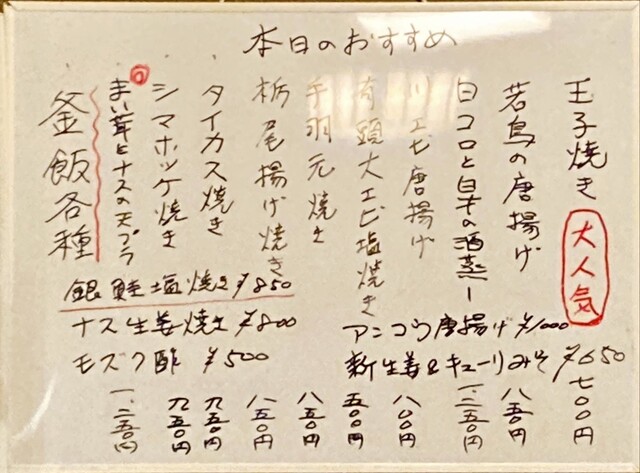 本日のおすすめ
王子焼き 大人気 七〇〇円
若鳥の唐揚げ 八五〇円
白コロと白才の酒蒸し 一、二五〇円
川エビ唐揚げ 八〇〇円
有頭大エビ塩焼き 五〇〇円
手羽元焼き 八五〇円
栃尾揚げ焼き 八五〇円
タイカス焼き 九五〇円
シマホッケ焼き 九五〇円
まい茸とナスの天プラ 一、二五〇円
釜飯各種
銀鮭塩焼き ¥850
ナス生姜焼き ¥800
モズク酢 ¥500
アンコウ唐揚げ ¥1000
新生姜&キューリみそ ¥650